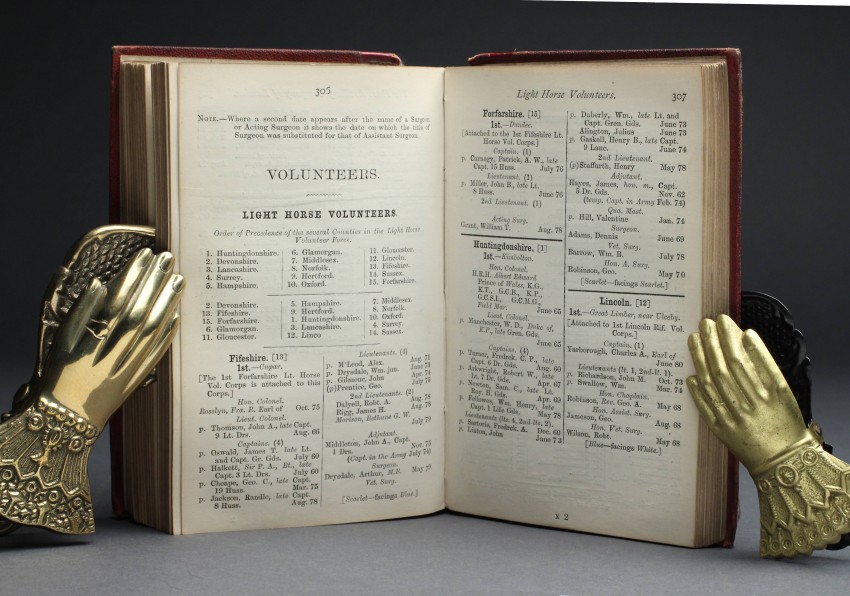 306
NOTE.—Where a second date appears after the name of a Surgeon
or Acting Surgeon it shows the date on which the title of
Surgeon was substituted for that of Assistant Surgeon.
VOLUNTEERS.
LIGHT HORSE VOLUNTEERS.
Order of Precedence of the several Counties in the Light Horse
Volunteer Force.
1. Huntingdonshire.
2. Devonshire.
3. Lancashire.
4. Surrey.
5. Hampshire.
6. Glamorgan.
7. Middlesex.
8. Norfolk.
9. Hertford.
10. Oxford.
11. Gloucester.
12. Lincoln.
13. Fifeshire.
14. Sussex.
15. Forfarshire.
2. Devonshire.
13. Fifeshire.
15. Forfarshire.
6. Glamorgan.
11. Gloucester.
5. Hampshire.
9. Hertford.
1. Huntingdonshire.
3. Lancashire.
12. Linco
7. Middlesex.
8. Norfolk.
10. Oxford.
4. Surrey.
14. Sussex.
Fifeshire. [13]
1st.—Cupar.
[The 1st Forfarshire Lt. Horse
Vol. Corps is attached to this
Corps.]
Hon. Colonel.
Rosslyn, Fra. R. Earl of Oct. 75
Lieut. Colonel.
p. Thomson, John A., late Capt.
9 Lt. Drs. Aug. 66
Captains. (4)
p. Oswald, James T. late Lt.
and Capt. Gr. Gds. July 60
p. Halkett, Sir P. A., Bt., late
Capt. 3 Lt. Drs. July 60
p. Cheape, Geo. C., late Capt.
19 Huss. Mar. 75
p. Jackson, Randle, late Capt.
8 Huss. Aug. 78
Lieutenants. (4)
p. McLeod, Alex. Aug. 71
p. Drysdale, Wm. jun. June 73
p. Gilmour, John Apr. 74
(p)Prentice, Geo. July 75
2nd Lieutenants. (2)
Dalyell, Robt. A. Aug. 78
Bigg, James H. Aug. 78
Morison, Bethune G. W.
July 79
Adjutant.
Middleton, John A., Capt.
1 Drs. Nov. 75
(Capt. in the Army July 74)
Surgeon.
Drysdale, Arthur, M.B. May 79
Vet. Surg.
[Scarlet—facings Blue.]
Light Horse Volunteers. 307
Forfarshire. [15]
1st.—Dundee.
[Attached to the 1st Fifeshire Lt.
Horse Vol. Corps.]
Captain. (1)
p. Carnegy, Patrick, A. W., late
Capt. 15 Huss. July 76
Lieutenant. (1)
p. Miller, John R., late Lt.
8 Huss. June 76
2nd Lieutenant. (1)
Acting Surg.
Grant, William T. Aug. 78
Huntingdonshire. [1]
1st.—Kimbolton.
Hon. Colonel.
H.R.H. Albert Edward
Prince of Wales, K.G.,
K.T., G.C.B., K.P.,
G.C.S.I., G.C.M.G.,
Field Mar. June 65
Lieut. Colonel.
p. Manchester, W. D., Duke of,
K.P., late Gren. Gds.
June 65
Captains. (4)
p. Turner, Fredrck. C. P., late
Capt. 6 Dr. Gds. Aug. 60
p. Arkwright, Robert W., late
Lt. 7 Dr. Gds. Apr. 67
p. Newton, Sam. C., late Lt.
Roy. H. Gds. Apr. 69
p. Fellowes, Wm. Henry, late
Capt. 1 Life Gds. May 78
Lieutenants (4s, 2nd-lts, 2).
p. Sartoris, Fredrck. A. Dec. 60
p. Linton, John June 73
p. Duberly, Wm., late Lt. and
Capt. Gren. Gds. June 73
p. Alington, Julius June 73
p. Gaskell, Henry B., late Capt.
9 Lanc. June 74
2nd Lieutenant.
(p)Staffurth, Henry May 78
Adjutant.
Hayes, James, hon. m., Capt.
5 Dr. Gds. Nov. 62
(temp. Capt. in Army Feb. 74)
Qua. Mast.
p. Hill, Valentine Jan. 74
Surgeon.
Adams, Dennis June 69
Vet. Surg.
Barrow, Wm. B. July 78
Hon. A. Surg.
Robinson, Geo. May 70
[Scarlet—facings Scarlet.]
Lincoln. [12]
1st.—Great Limber, near Ulceby.
[Attached to 1st Lincoln Rif. Vol.
Corps.]
Captain. (1)
Yarborough, Charles A., Earl of
June 80
Lieutenants (lt. 1, 2nd-lt. 1).
p. Richardson, John M. Oct. 73
p. Swallow, Wm. Mar. 74
Hon. Chaplain.
Robinson, Rev. Geo. A. May 68
Hon. Assist. Surg.
Jameson, Geo. Aug. 68
Hon. Vet. Surg.
Wilson, Robt. May 68
[Blue—facings White.]
X 2